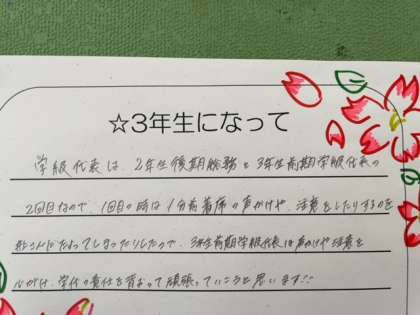 ☆3年生になって
学級代表は、2年生後期総務と3年生前期学級代表の
2回目なので、1回目の時は1分前着席の声かけや、注意をしたりするのを
になってしまったりしたので、3年生前期学級代表は声かけや注意を
心がけ、学代の責任を背おって頑張っていこうと思います!!